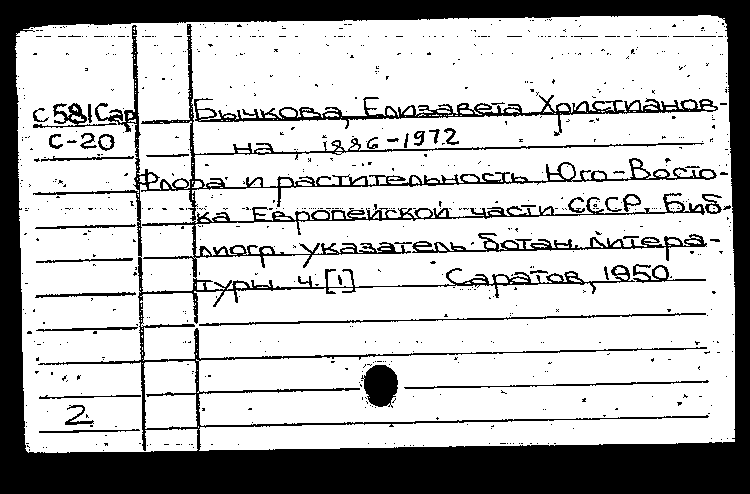 С581Сар Бычкова, Елизавета Христианов-
С-20 на, 1886-1972
Флора и растительность Юго-Восто-
ка Европейской части СССР. Биб-
лиогр. указатель ботан. литера-
туры. ч. [1] Саратов, 1950
2